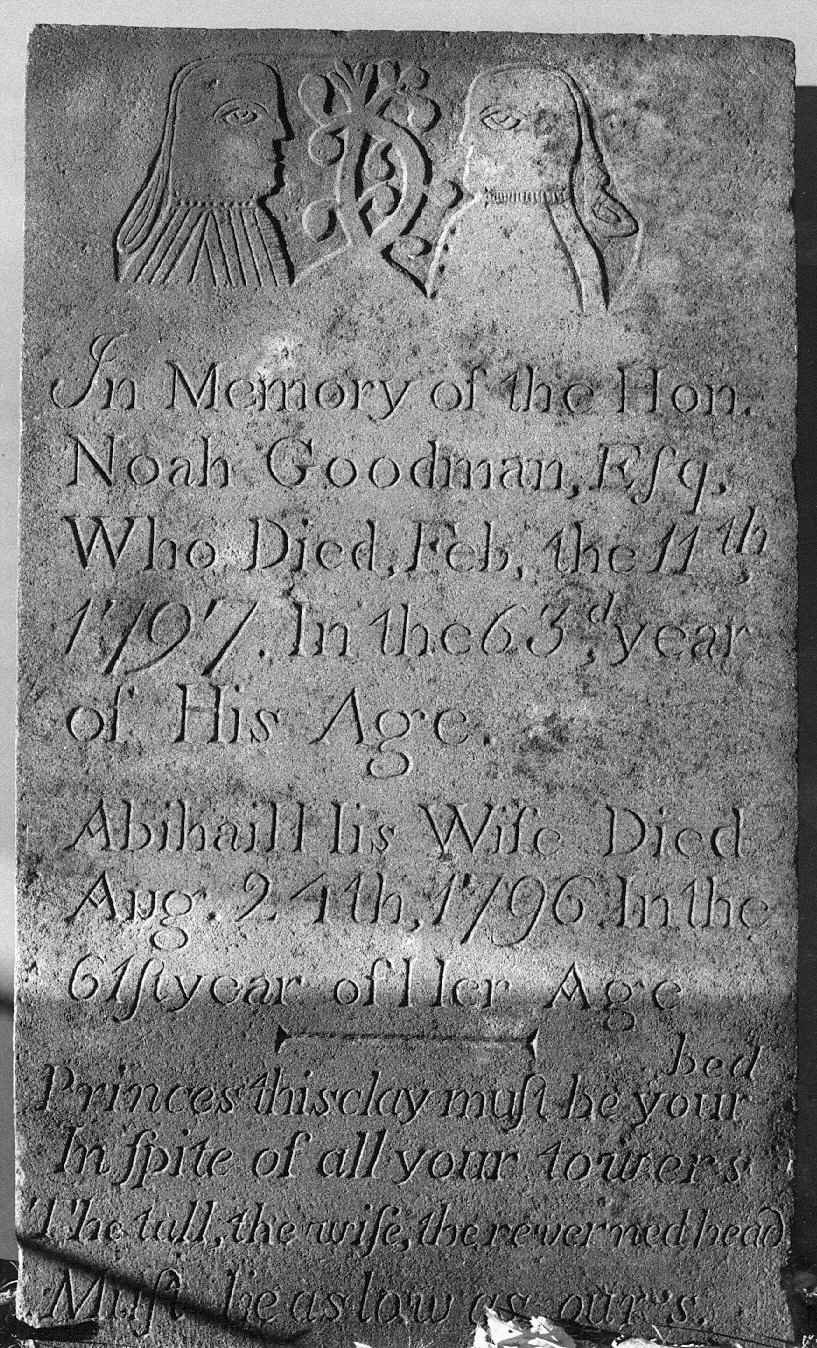 In Memory of the Hon.
Noah Goodman, Eſq,
Who Died, Feb, the 11th,
1797. In the 63d, year
of His Age.
Abihail His Wife Died
Aug. 24th, 1796. In the
61ſt year of Her Age
bed
Princes this clay muſt be your
In ſpite of all your towers
The tall, the wiſe, the reverned head
Muſt be as low as ours.